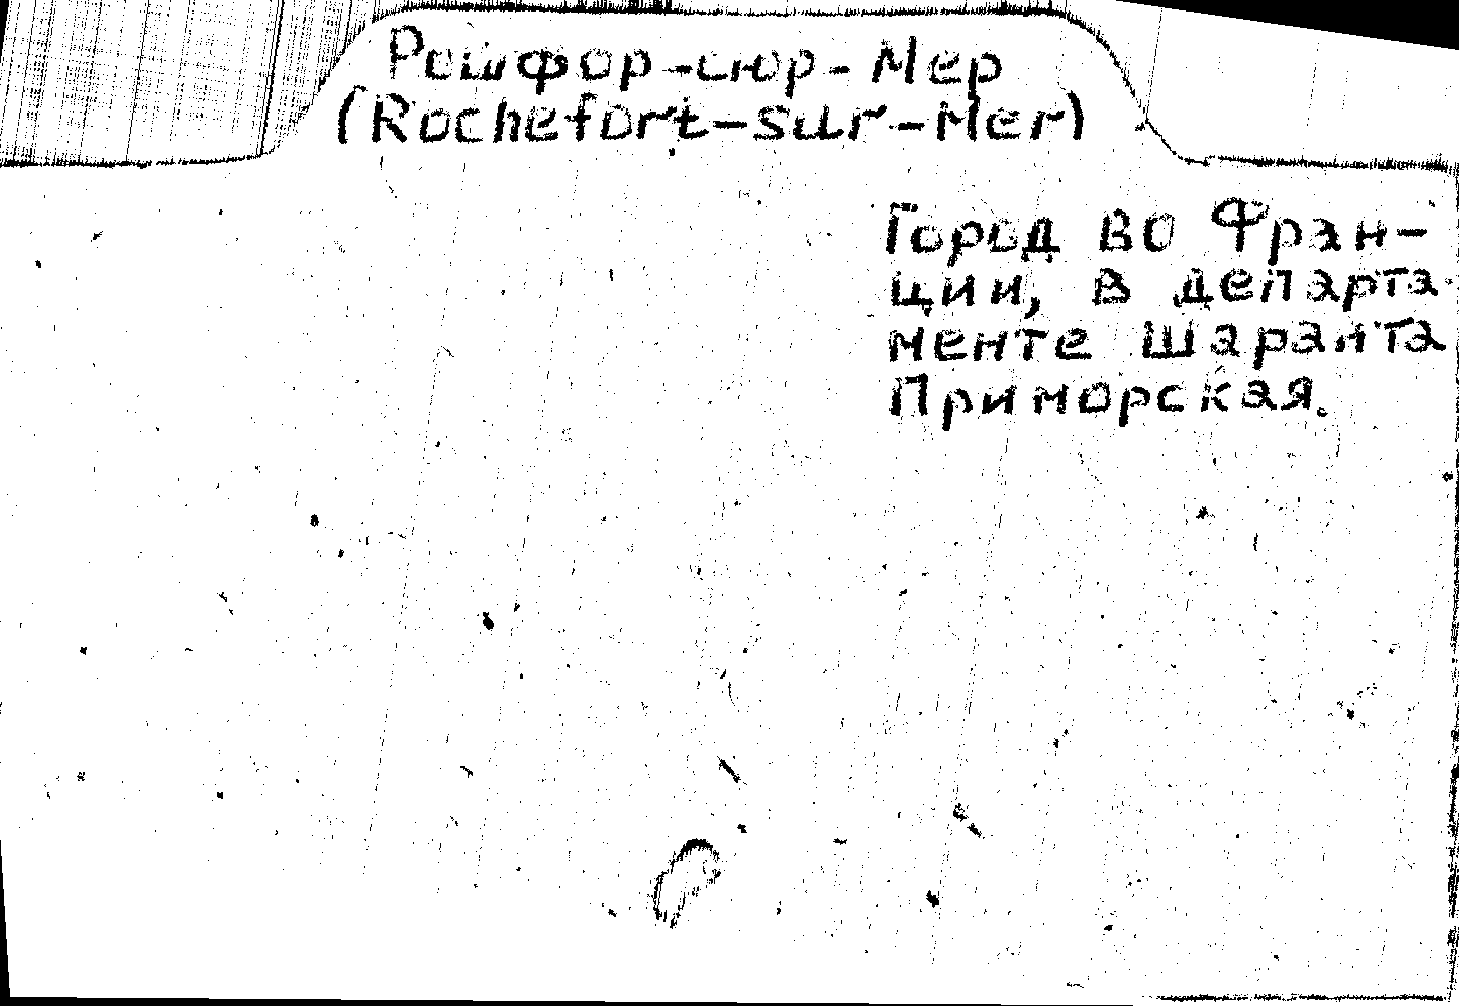 Рошфор-сюр-Мер
(Rochefort-sur-Mer)
Город во Фран-
ции, в департа-
менте Шаранта
Приморская.